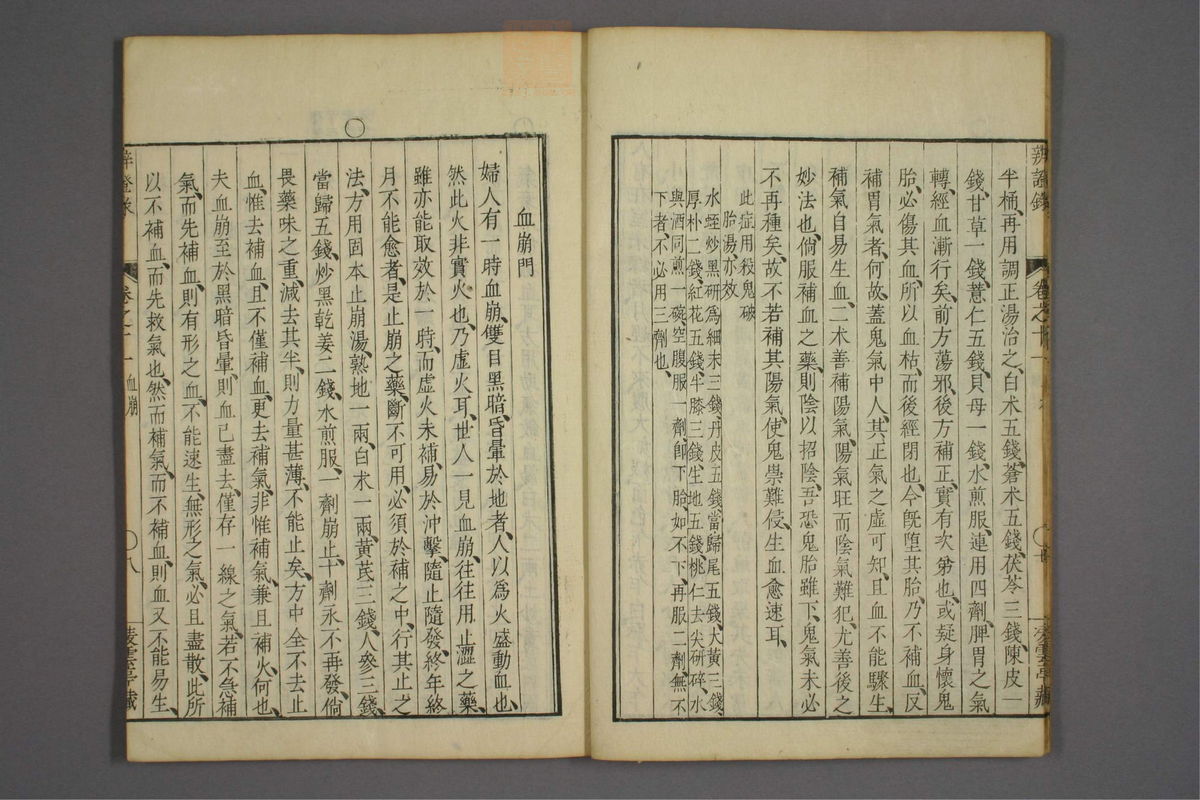 半桶、再用調正湯治之、白术五錢、蒼术五錢、茯苓三錢、陳皮一
錢、甘草一錢、薏仁五錢、貝母一錢、水煎服、連用四劑、脾胃之氣
轉、經血漸行矣、前方蕩邪、後方補正、實有次第也、或疑身懷鬼
胎、必傷其血、所以血枯、而後經閉也、今旣墮其胎、乃不補血、反
補胃氣者、何故、蓋鬼氣中人、其正氣之虛可知、且血不能驟生、
補氣自易生血、二术善補陽氣、陽氣旺而陰氣難犯、尤善後之
妙法也、倘服補血之藥、則陰以招陰、吾恐鬼胎雖下、鬼氣未必
不再種矣、故不若補其陽氣、使鬼祟難侵、生血愈速耳、
此症用殺鬼破
胎湯亦效
水蛭炒黑研爲細末三錢、丹皮五錢、當歸尾五錢、大黃三錢、
厚朴二錢、紅花五錢、半膝三錢、生地五錢、桃仁去尖研碎、水
與酒同煎一碗、空腹服、一劑卽下胎、如不下、再服二劑、無不
下者、不必用三劑也、
辨證錄 卷之十一
凌雲亭藏
血崩門
婦人有一時血崩、雙目黑暗、昏暈於地者、人以爲火盛動血也、
然此火非實火也、乃虛火耳、世人一見血崩、往往用止澀之藥、
雖亦能取效於一時、而虛火未補、易於沖擊、隨止隨發、終年終
月不能愈者、是止崩之藥、斷不可用、必須於補之中、行其止之
法、方用固本止崩湯、熟地一兩、白术一兩、黃芪三錢、人參三錢、
當歸五錢、炒黑乾姜二錢、水煎服、一劑崩止、十劑永不再發、倘
畏藥味之重、減去其半、則力量甚薄、不能止矣、方中全不去止
血、惟去補血、且不僅補血、更去補氣、非惟補氣、兼且補火、何也、
夫血崩至於黑暗昏暈、則血已盡去、僅存一線之氣、若不急補
氣、而先補血、則有形之血、不能速生、無形之氣、必且盡散、此所
以不補血、而先救氣也、然而補氣、而不補血、則血又不能易生、
辨證錄 卷之十一 血崩 〇八 凌雲亭藏